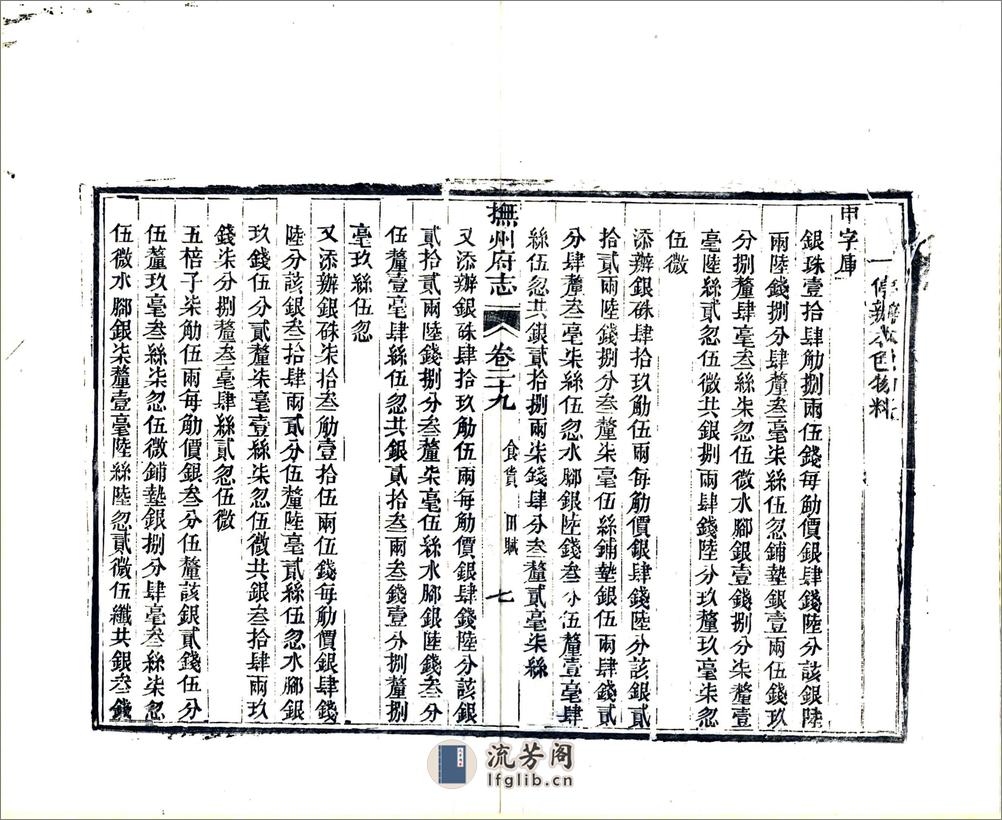 一條辦本色物料
甲字庫
銀硃壹拾肆觔捌兩伍錢每觔價銀肆錢陸分該銀陸
兩陸錢捌分肆釐叁毫柒絲伍忽鋪墊銀壹兩伍錢玖
分捌釐肆毫叁絲柒忽伍微水腳銀壹錢捌分柒釐壹
毫陸絲貳忽伍微共銀捌兩肆錢陸分玖釐玖毫柒忽
伍微
添辦銀硃肆拾玖觔伍兩每觔價銀肆錢陸分該銀貳
拾貳兩陸錢捌分叁釐柒毫伍絲鋪墊銀伍兩肆錢貳
分肆釐叁毫柒絲伍忽水腳銀陸錢叁分伍釐壹毫肆
絲伍忽共銀貳拾捌兩柒錢肆分叁釐貳毫柒絲
撫州府志 卷二十九 食貨 田賦 七
又添辦銀硃肆拾玖觔伍兩每觔價銀肆錢陸分該銀
貳拾貳兩陸錢捌分叁釐柒毫伍絲水腳銀陸錢叁分
伍釐壹毫肆絲伍忽共銀貳拾叁兩叁錢壹分捌釐捌
毫玖絲伍忽
又添辦銀硃柒拾叁觔壹拾伍兩伍錢每觔價銀肆錢
陸分該銀叁拾肆兩貳分伍釐陸毫貳絲伍忽水腳銀
玖錢伍分貳釐柒毫壹絲柒忽伍微共銀叁拾肆兩玖
錢柒分捌釐叁毫肆絲貳忽伍微
五棓子柒觔伍兩每觔價銀叁分伍釐該銀貳錢伍分
伍釐玖毫叁絲柒忽伍微鋪墊銀捌分肆毫叁絲柒忽
伍微水腳銀柒釐壹毫陸絲陸忽貳微伍纖共銀叁錢
流芳阁
lfglib.cn